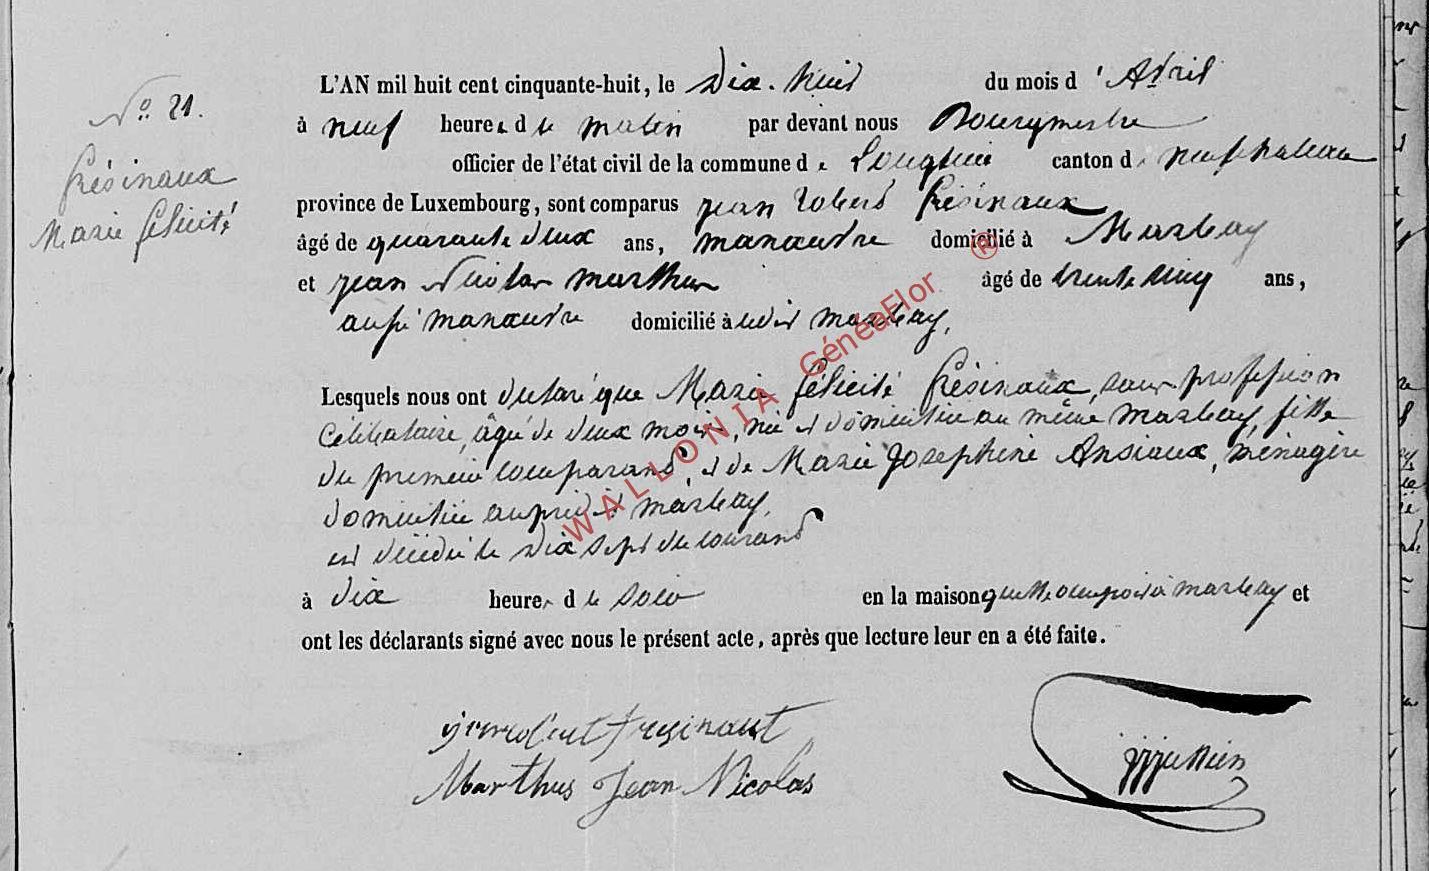 N° 21.
Frésinaux
Marie félicité
L'AN mil huit cent cinquante-huit, le Dix-huit du mois d'Avril
à neuf heures du matin par devant nous Bourgmestre
officier de l'état civil de la commune de Longlier canton de neufchateau
province de Luxembourg, sont comparus jean Robert frésinaux
âgé de quarante deux ans, manœuvre domicilié à Marbay
et jean Nicolas marthus âgé de trente cinq ans,
aussi manœuvre domicilié à udit marbay,
Lesquels nous ont déclaré que Marie félicité frésinaux, sans profession
célibataire, âgé de deux mois, née et domiciliée au même marbay, fille
du premier comparant, et de Marie Josephine Ansiaux, ménagère
domiciliée audit marbay,
est décédée le dix sept du courant
à dix heures du soir en la maison qu'elle occupoit à marbay et
ont les déclarants signé avec nous le présent acte, après que lecture leur en a été faite.
fresinaux
Marthus Jean Nicolas
WALLONIA GénéaFlor ®